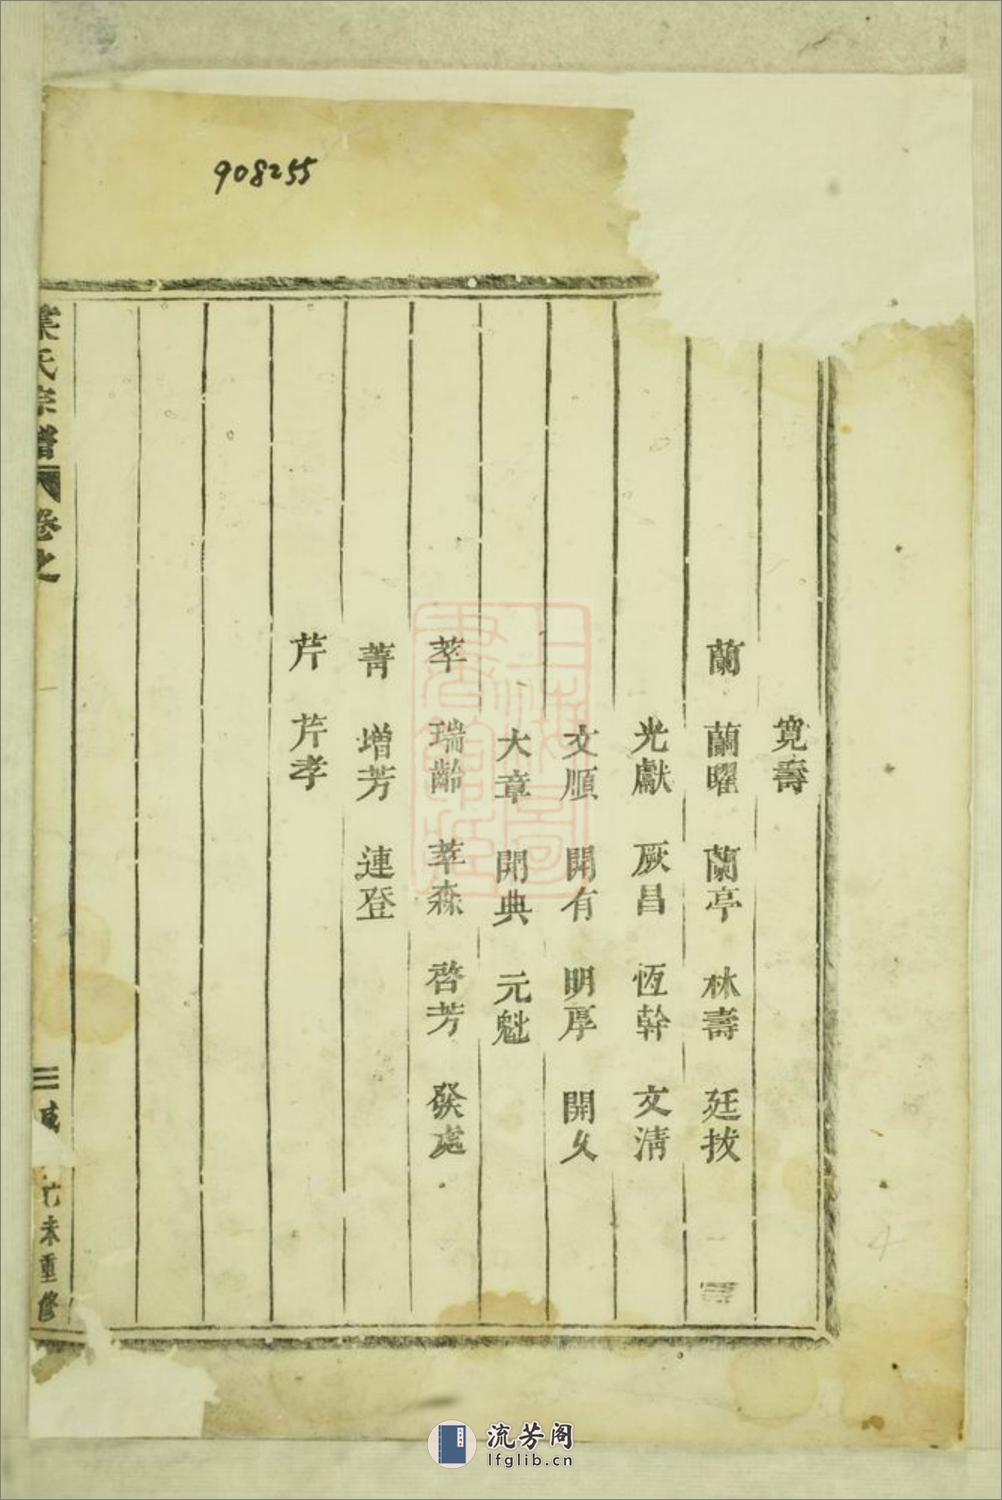 908255
寬壽
蘭 蘭曜 蘭亭 林壽 廷拔
光獻 厥昌 恆幹 文清
文順 開有 明厚 開文
大章 開典 元魁
萃 瑞齡 萃森 啓芳 發處
菁 增芳 連登
芹 芹孝
葉氏宗譜 卷之
三 咸
乙未重修
上海圖書館藏
流芳阁
lfglib.cn